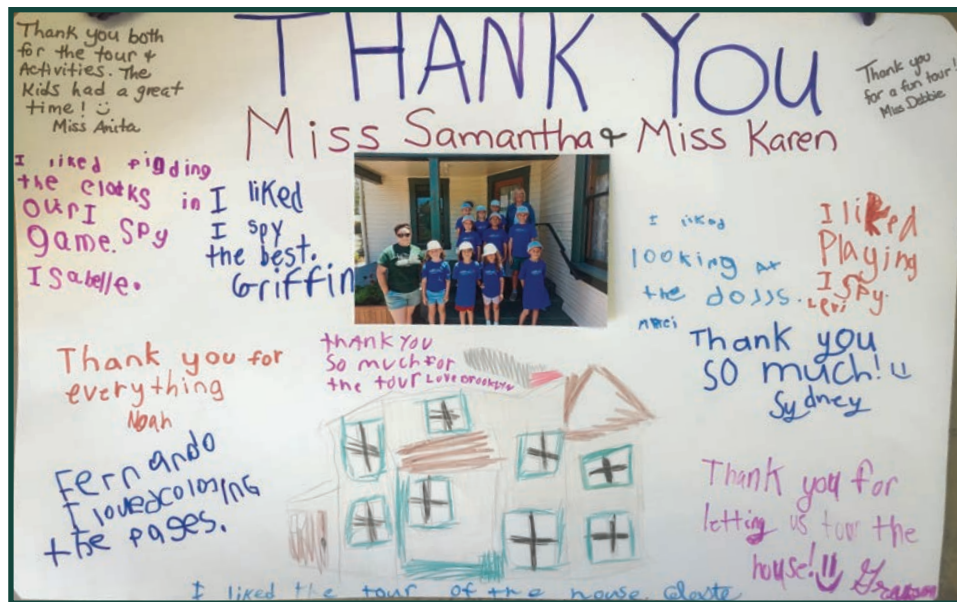 THANK YOU
Miss Samantha & Miss Karen
Thank you both
for the tour &
Activities. The
Kids had a great
time! :)
Miss Anita
Thank you
for a fun tour!
Miss Debbie
I liked
the clocks in
our I
game. Spy
ISabelle.
I liked
I spy
the best.
Griffin
I liked
looking at
the dolls.
I liked
Playing
I Spy.
Levi
Thank you for
everything
Noah
thank you
So much for
the tour Love Brooklyn
Thank you
SO much! :)
Sydney
Fernando
I loved coloring
the pages.
Thank you for
letting us tour the
house! :)
I liked the tour of the house